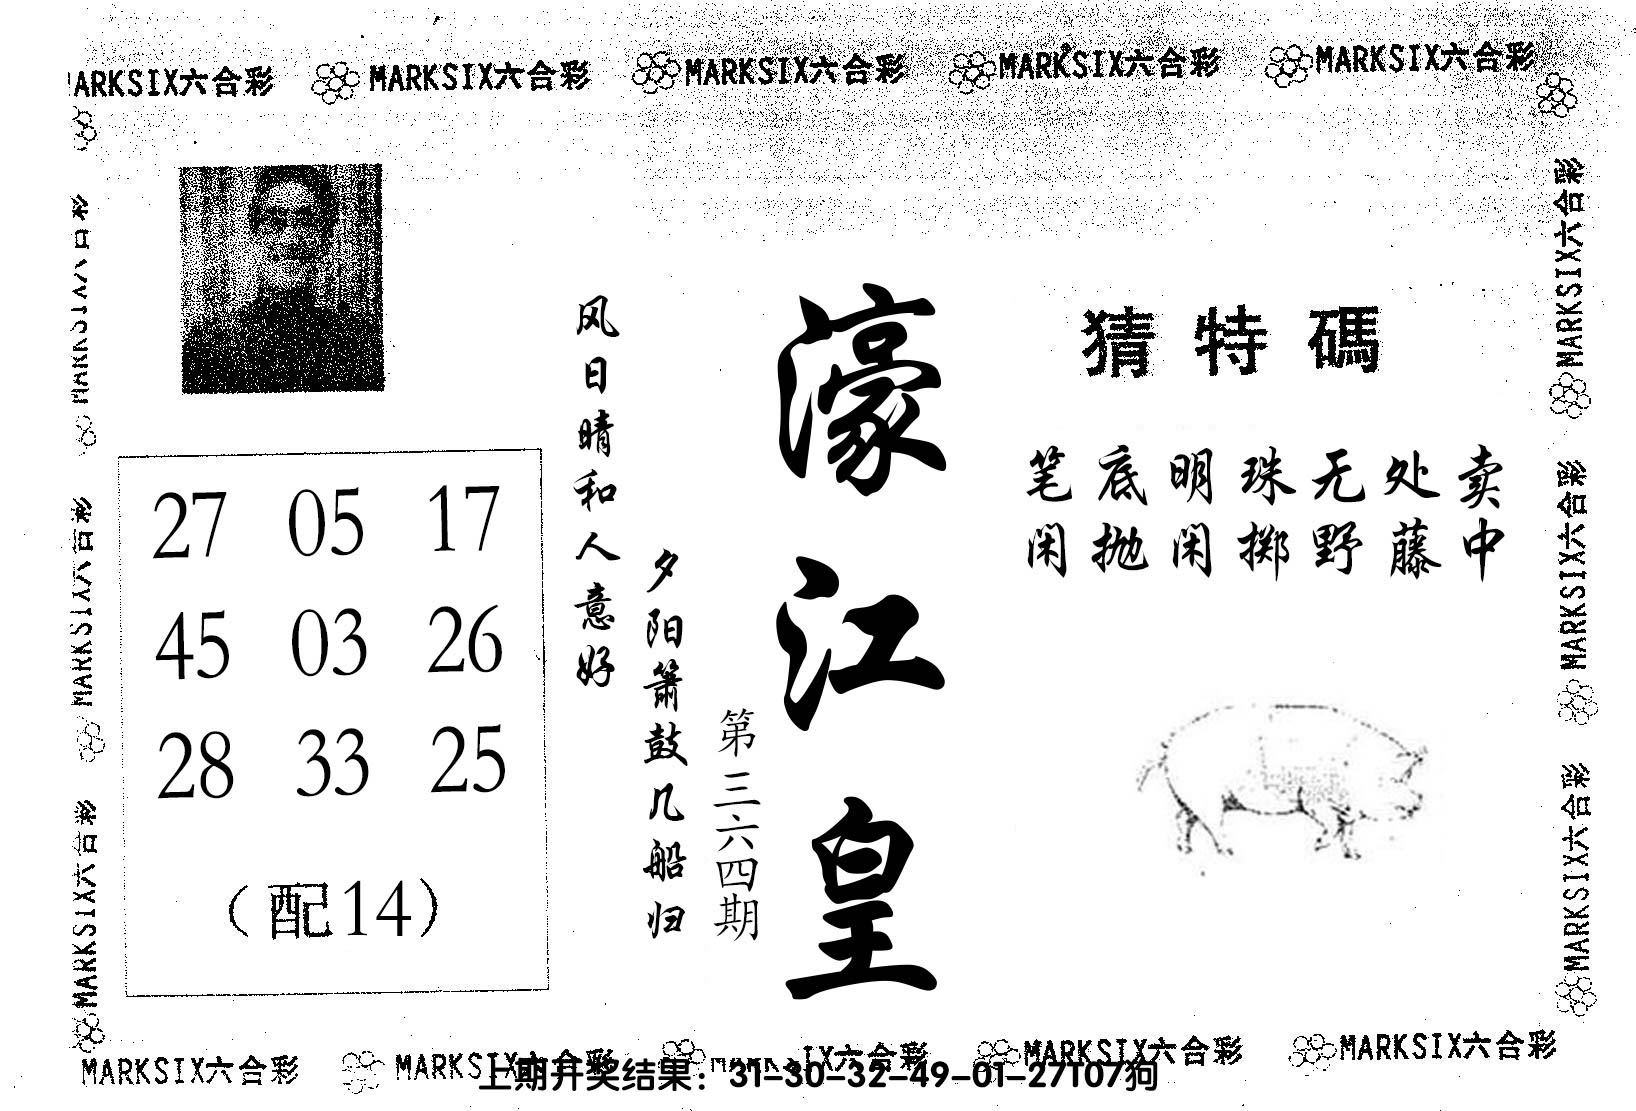 MARKSIX六合彩 MARKSIX六合彩 MARKSIX六合彩 MARKSIX六合彩 MARKSIX六合彩
猜特碼
笔底明珠无处卖
闲抛闲掷野藤中
濠江皇
第三六四期
风日晴和人意好
夕阳箫鼓几船归
27 05 17
45 03 26
28 33 25
（配14）
MARKSIX六合彩
MARKSIX六合彩
MARKSIX六合彩
MARKSIX六合彩
MARKSIX六合彩
MARKSIX六合彩
MARKSIX六合彩 MARKSIX六合彩 MARKSIX六合彩 MARKSIX六合彩
上期开奖结果：31-30-32-49-01-27T07狗